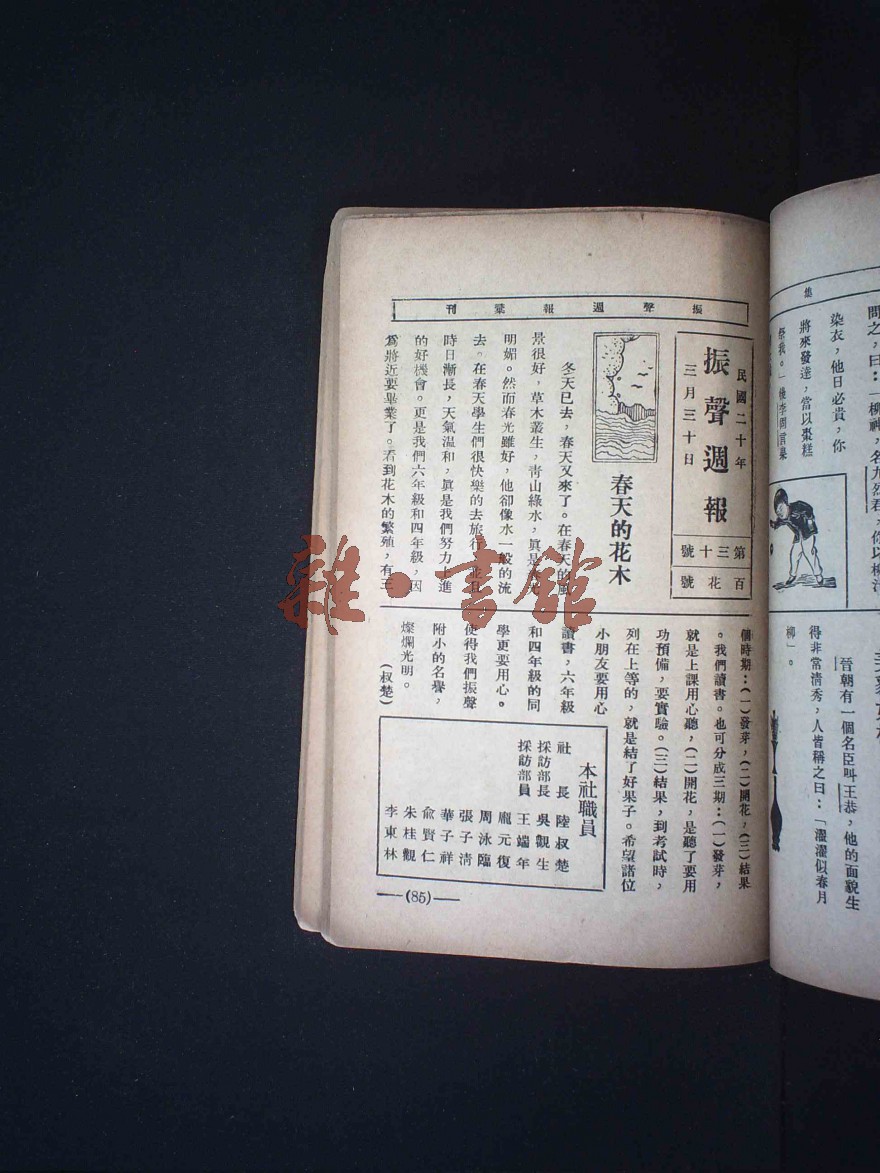 振聲週報彙刊
民國二十年
振聲週報
三月三十日
第三十號
百花號
春天的花木
冬天已去，春天又來了。在春天的風
景很好，草木叢生，靑山綠水，眞是春光
明媚。然而春光雖好，他卻像水一般的流
去。在春天學生們很快樂的去旅行，並且
時日漸長，天氣溫和，眞是我們努力上進
的好機會。更是我們六年級和四年級，因
爲將近要畢業了。看到花木的繁殖，有三
個時期：(一)發芽，(二)開花，(三)結果
。我們讀書。也可分成三期：(一)發芽，
就是上課用心聽，(二)開花，是聽了要用
功預備，要實驗。(三)結果，到考試時，
列在上等的，就是結了好果子。希望諸位
小朋友要用心
讀書，六年級
和四年級的同
學更要用心。
使得我們振聲
附小的名譽，
燦爛光明。
(叔楚)
本社職員
社長 陸叔楚
採訪部長 吳觀生
採訪部員 王端年
龐元復
周泳臨
張子淸
華子祥
俞賢仁
朱桂觀
李東林
—(85)—
集
問之，曰：「柳神，名九烈君，你以柳汁
染衣，他日必貴，你
將來發達，當以棗糕
祭我。」後李固言果
晉朝有一個名臣叫王恭，他的面貌生
得非常清秀，人皆稱之曰：「濯濯似春月
柳」。
雜·書館